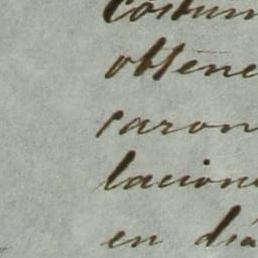 costum
obtene
caron
lacion
en diá